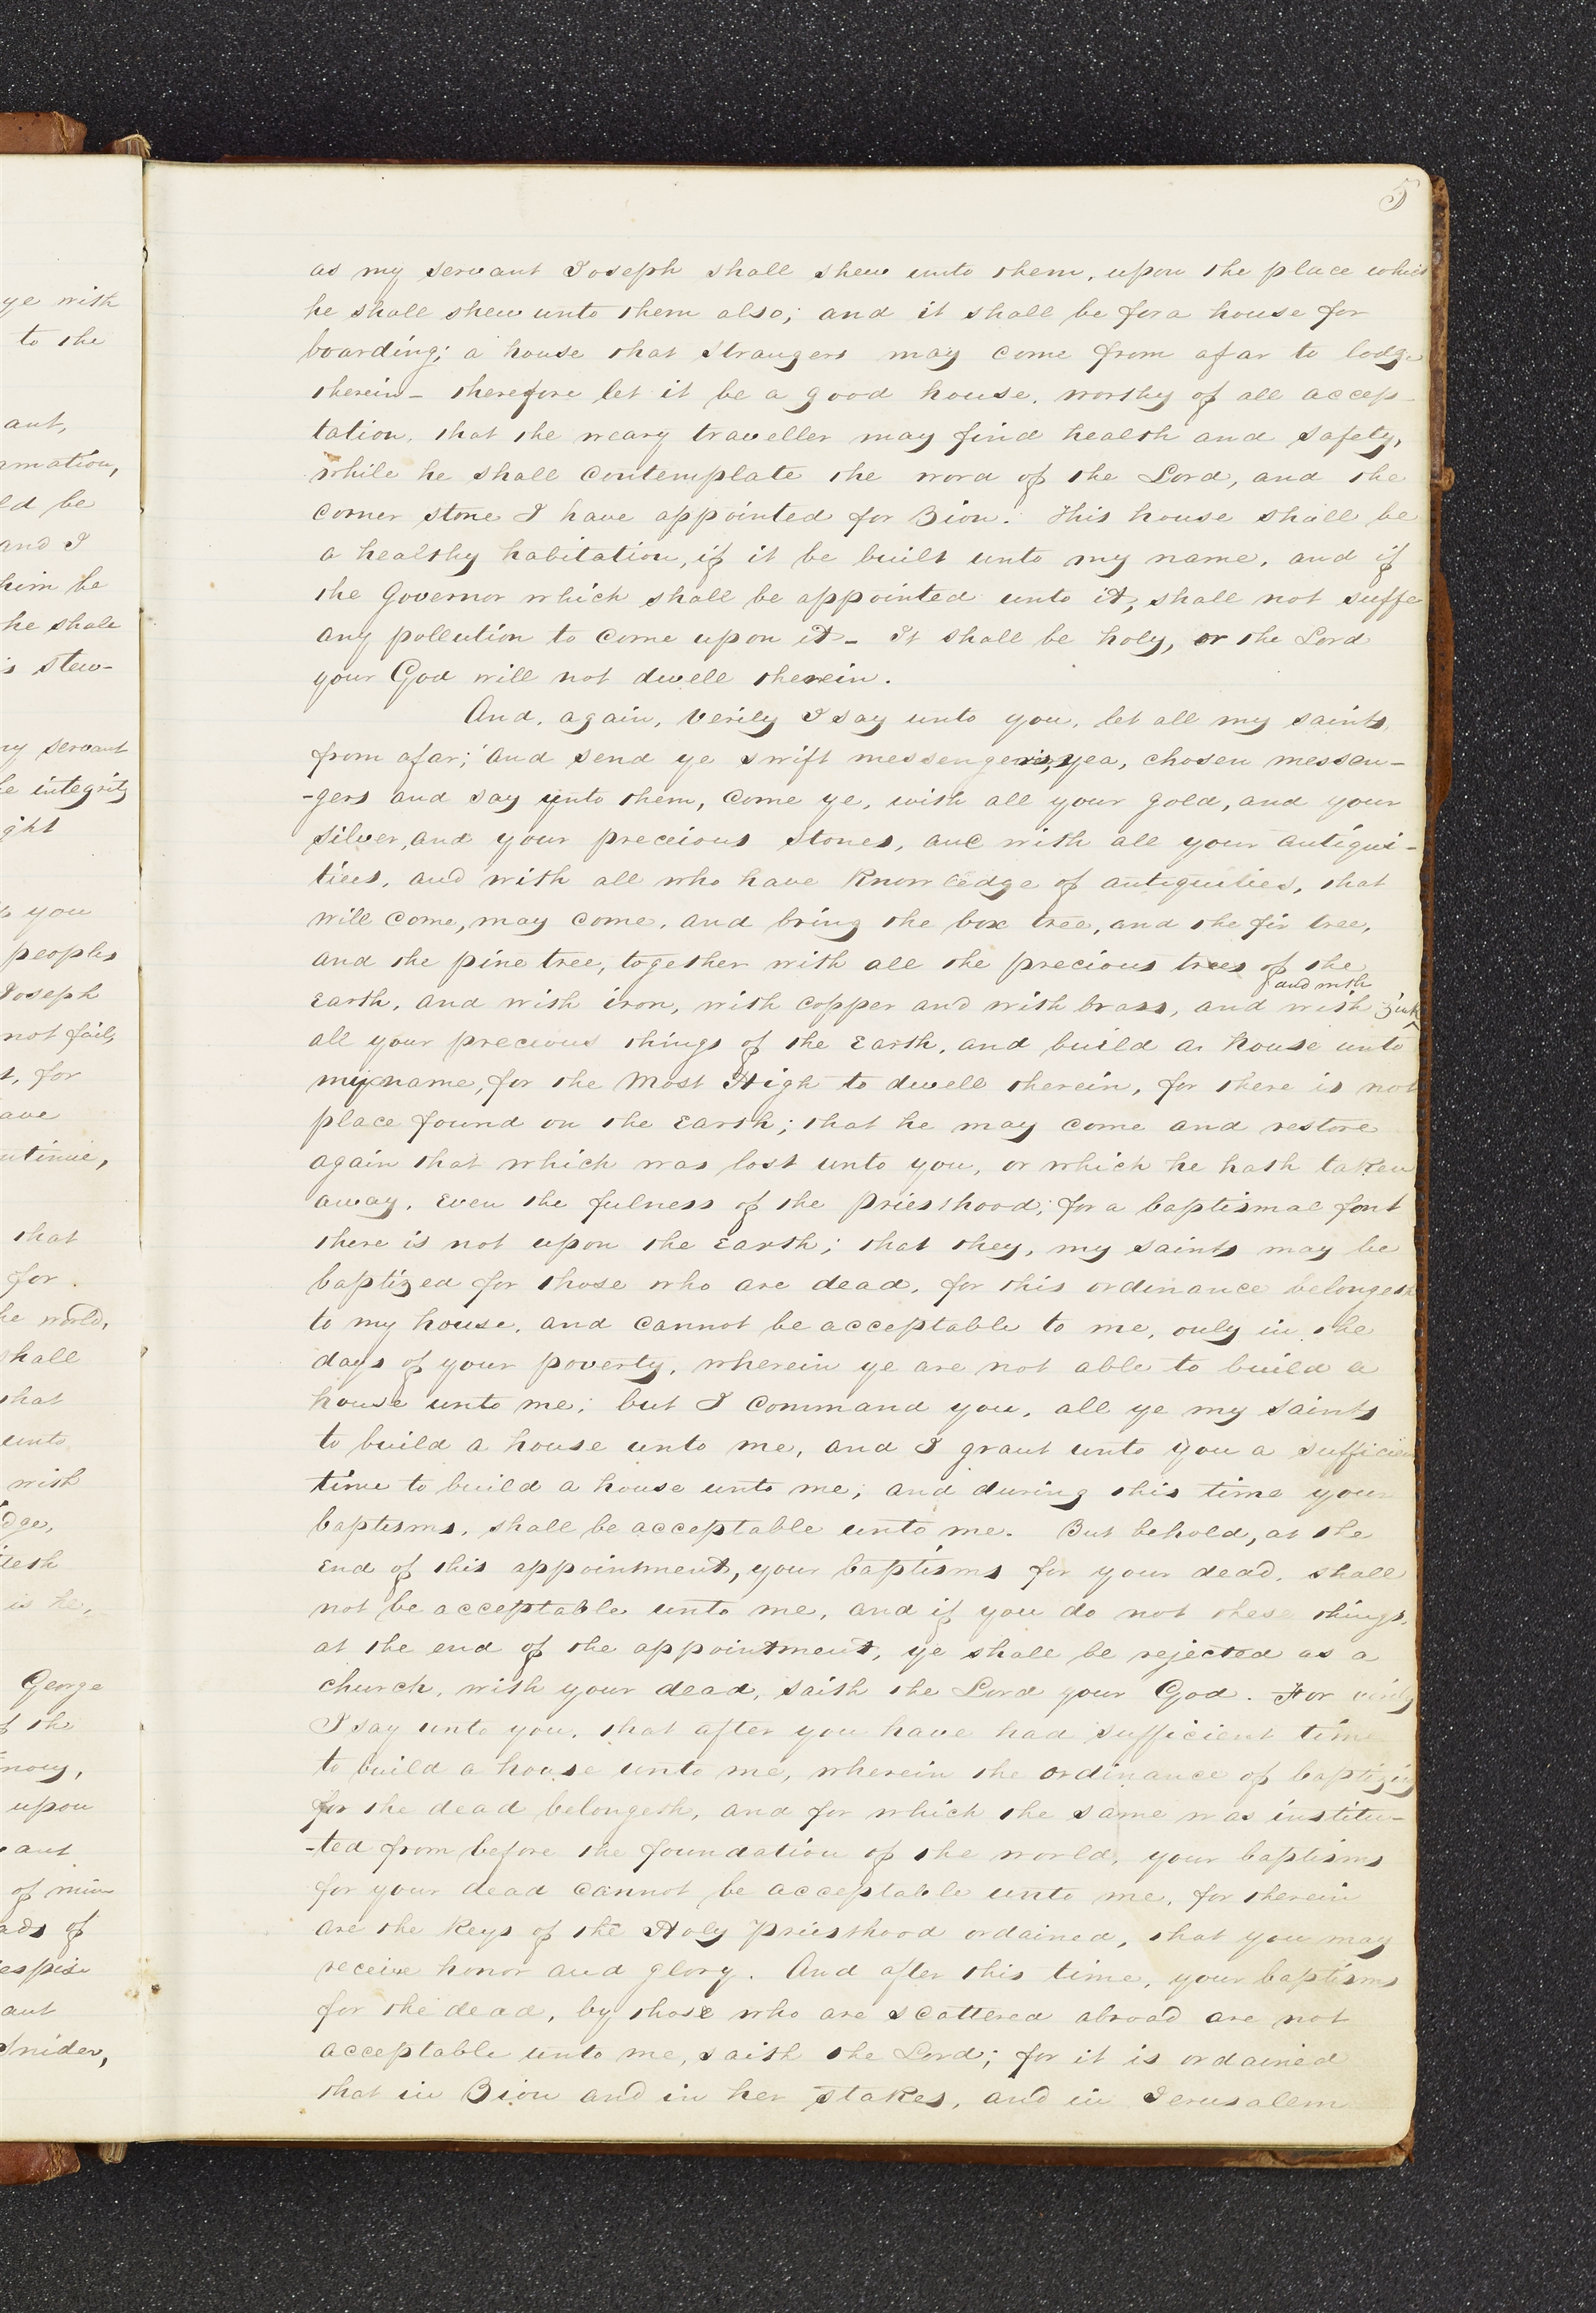 5
as my servant Joseph shall shew unto them, upon the place which
he shall shew unto them also; and it shall be for a house for
boarding; a house that strangers may come from afar to lodge
therein— therefore let it be a good house, worthy of all accep-
tation, that the weary traveller may find health and safety,
while he shall contemplate the word of the Lord, and the
corner stone I have appointed for Zion. This house shall be
a healthy habitation, if it be built unto my name, and if
the Governor which shall be appointed unto it, shall not suffe
any pollution to come upon it— It shall be holy, or the Lord
your God will not dwell therein.
And, again, verily I say unto you, let all my saints,
from afar; and send ye swift messengers, yea, chosen messen-
-gers and say unto them, come ye, with all your gold, and your
silver, and your precious stones, and with all your antiqui-
ties, and with all who have knowledge of antiquities, that
will come, may come, and bring the box tree, and the fir tree,
and the pine tree, together with all the precious trees of the
and with
Earth, and with iron, with copper and with brass, and with zink
all your precious things of the Earth, and build a house unto
my name, for the Most High to dwell therein, for there is not
place found on the Earth; that he may come and restore
again that which was lost unto you, or which he hath taken
away, even the fulness of the priesthood; for a baptismal font
there is not upon the Earth; that they, my saints may be
baptized for those who are dead, for this ordinance belongeth
to my house, and cannot be acceptable to me, only in the
days of your poverty, wherein ye are not able to build a
house unto me; but I command you, all ye my saints
to build a house unto me, and I grant unto you a sufficien
time to build a house unto me; and during this time your
baptisms, shall be acceptable unto me. But behold, at the
end of this appointment, your baptisms for your dead, shall
not be acceptable unto me, and if you do not these things,
at the end of the appointment, ye shall be rejected as a
church, with your dead, saith the Lord your God. For verily
I say unto you, that after you have had sufficient time
to build a house unto me, wherein the ordinance of baptizing
for the dead belongeth, and for which the same was institu-
-ted from before the foundation of the world, your baptisms
for your dead cannot be acceptable unto me, for therein
are the keys of the Holy priesthood ordained, that you may
receive honor and glory. And after this time, your baptisms
for the dead, by those who are scattered abroad are not
acceptable unto me, saith the Lord; for it is ordained
that in Zion and in her stakes, and in Jerusalem
ye with
to the
ant,
rmation,
ld be
and I
him be
he shall
is stew-
my servant
he integrity
ght
you
peoples
Joseph
not fail,
t, for
ave
ntinue,
that
for
he world,
shall
that
unto
with
dge,
teth
is he,
George
f the
mony,
upon
ant
of min
ads of
espise
ant
Snider,